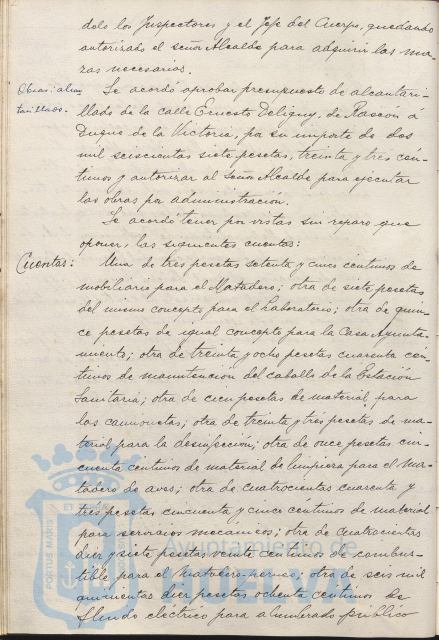 dolo los Inspectores y el Jefe del Cuerpo, quedando
autorizado el señor Alcalde para adquirir las ma-
zas necesarias.
Obras: alcan
tarillado.
Se acordó aprobar presupuesto de alcantari-
llado de la calle Ernesto Deligny, de Rascón á
Duque de la Victoria, por su importe de dos
mil seiscientas siete pesetas, treinta y tres cén-
timos y autorizar al Señor Alcalde para ejecutar
las obras por administración.
Se acordó tener por vistas sin reparo que
oponer, las siguientes cuentas:
Cuentas:
Una de tres pesetas setenta y cinco centimos de
mobiliario para el Matadero; otra de siete pesetas
del mismo concepto para el Laboratorio; otra de quin-
ce pesetas de igual concepto para la Casa Ayunta-
miento; otra de treinta y ocho pesetas cuarenta cen-
timos de manutención del caballo de la Estación
Sanitaria; otra de cien pesetas de material para
las camionetas; otra de treinta y tres pesetas de ma-
terial para la desinfeción; otra de once pesetas cin-
cuenta centimos de material de limpieza para el Ma-
tadero de aves; otra de cuatrocientas cuarenta y
tres pesetas cincuenta y cinco centimos de material
para servicios mecanicos; otra de cuatrocientas
diez y siete pesetas veinte centimos de combus-
tible para el Matadero; otra de seis mil
quinientas diez pesetas ochenta centimos de
flúido eléctrico para alumbrado público
PORTUS MARIS ET
Ayuntamiento de
HUELVA